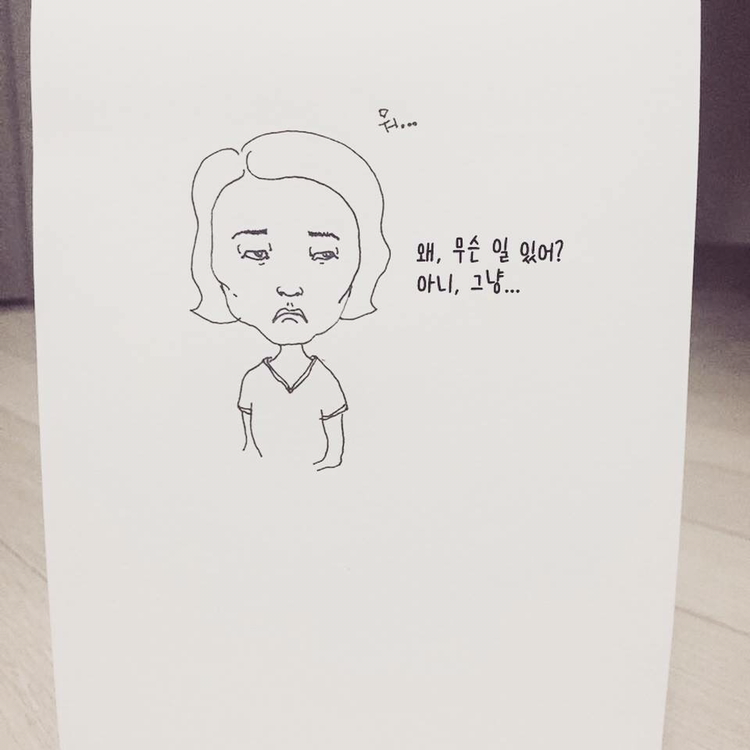 뭐...
왜, 무슨 일 있어?
아니, 그냥...